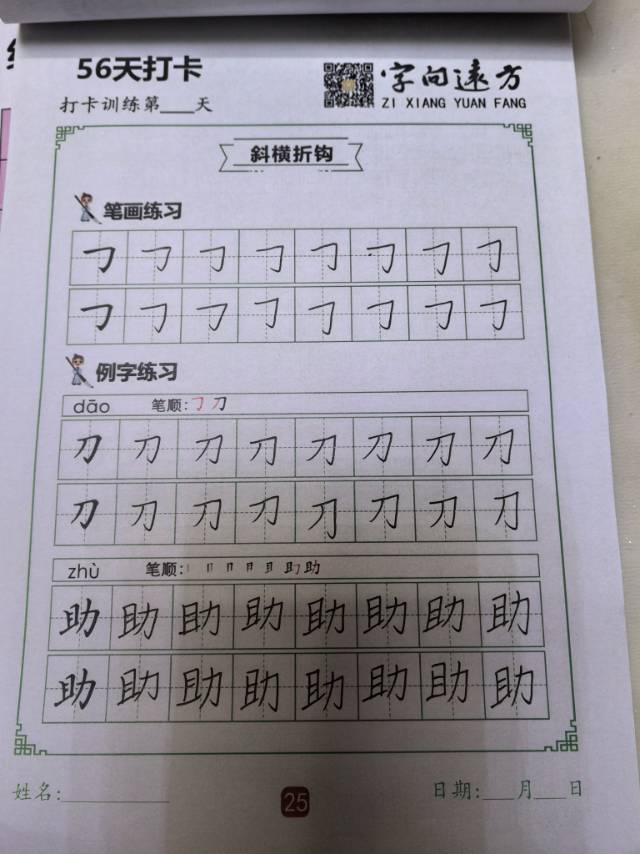 56天打卡
打卡训练第___天
字向远方
ZI XIANG YUAN FANG
斜横折钩
笔画练习
㇆ ㇆ ㇆ ㇆ ㇆ ㇆ ㇆ ㇆
㇆ ㇆ ㇆ ㇆ ㇆ ㇆ ㇆ ㇆
例字练习
dāo 笔顺: ㇆ 刀
刀 刀 刀 刀 刀 刀 刀 刀
刀 刀 刀 刀 刀 刀 刀 刀
zhù 笔顺: 助
助 助 助 助 助 助 助 助
助 助 助 助 助 助 助 助
姓名:__________ 25 日期:___月___日